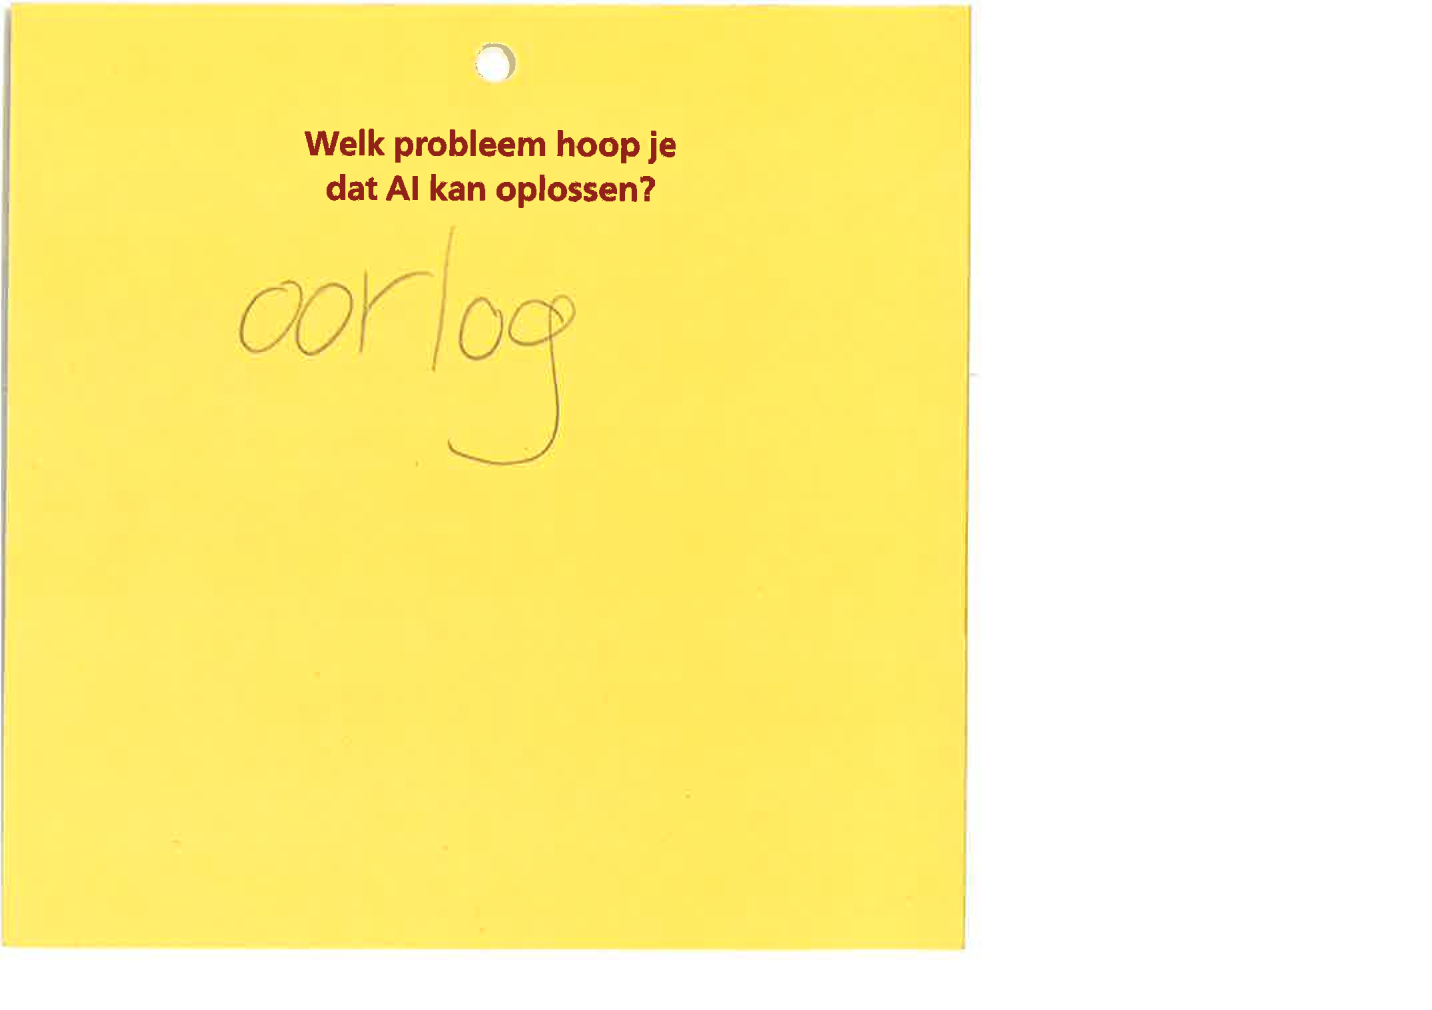 Welk probleem hoop je
dat AI kan oplossen?
oorlog